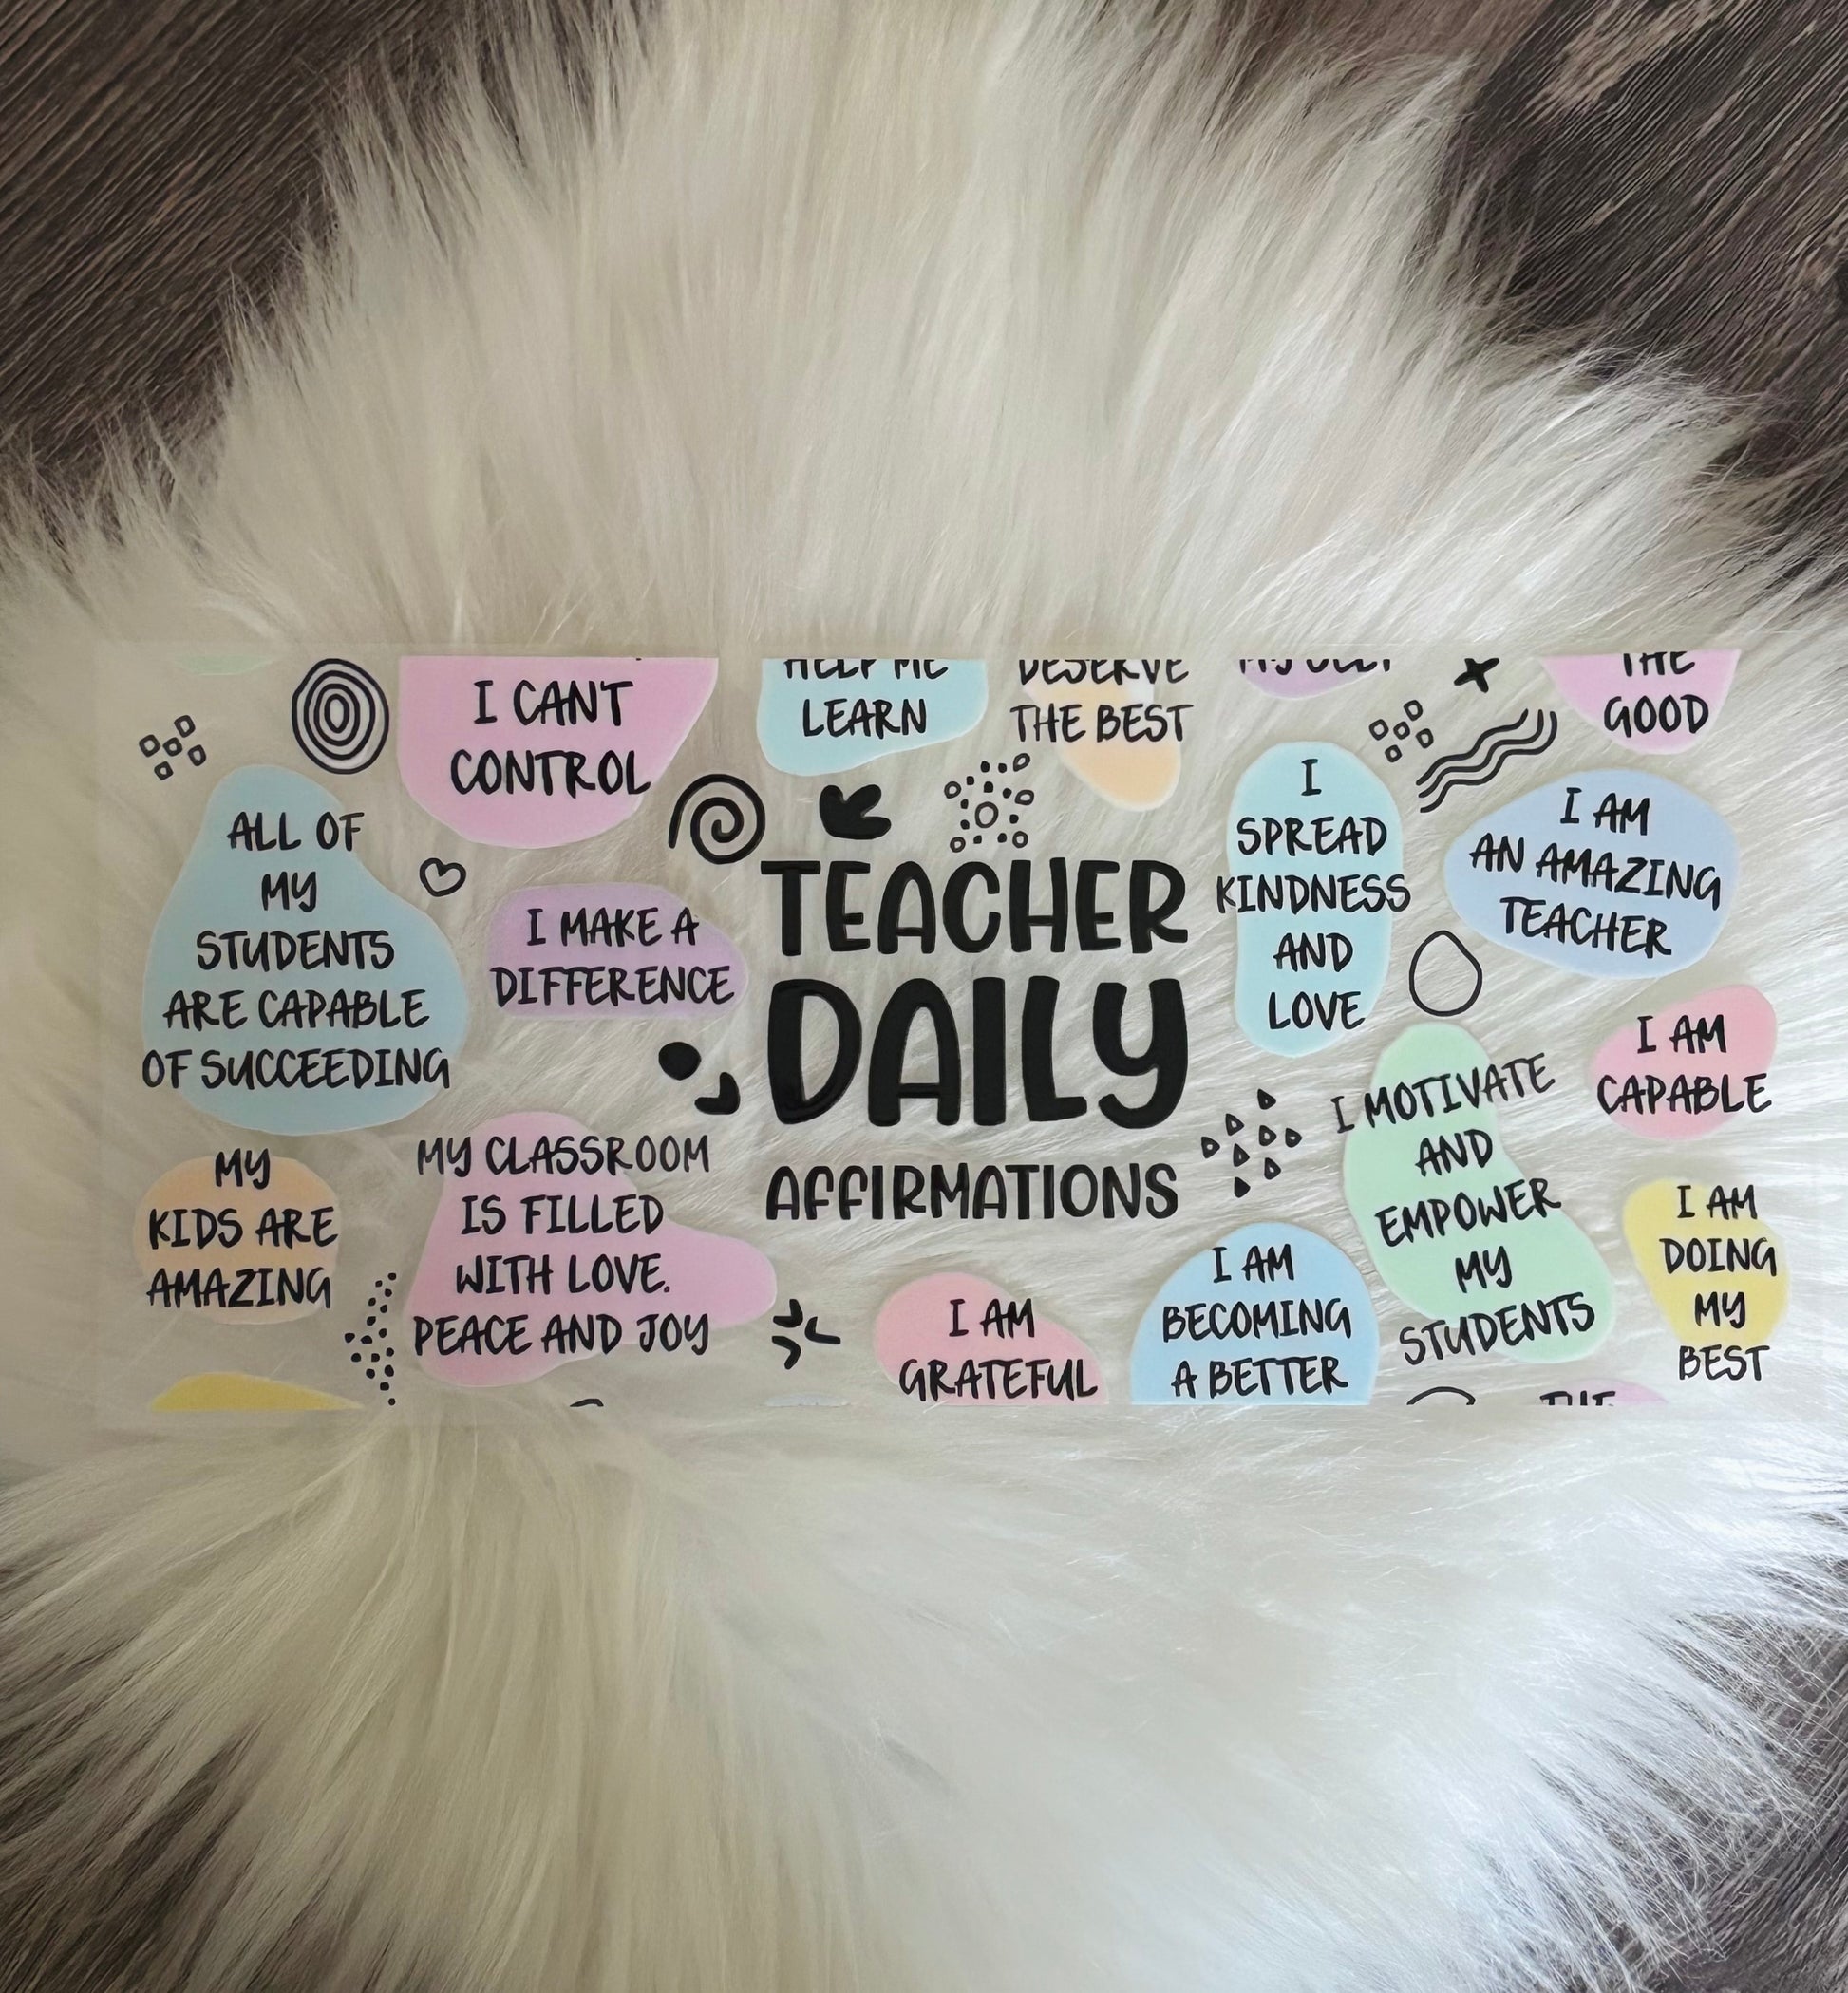 I CAN'T
CONTROL
HELP ME
LEARN
DESERVE
THE BEST
THE
GOOD
ALL OF
MY
STUDENTS
ARE CAPABLE
OF SUCCEEDING
I MAKE A
DIFFERENCE
TEACHER
DAILY
AFFIRMATIONS
I
SPREAD
KINDNESS
AND
LOVE
I AM
AN AMAZING
TEACHER
I AM
CAPABLE
MY
KIDS ARE
AMAZING
MY CLASSROOM
IS FILLED
WITH LOVE.
PEACE AND JOY
I AM
GRATEFUL
I AM
BECOMING
A BETTER
I MOTIVATE
AND
EMPOWER
MY
STUDENTS
I AM
DOING
MY
BEST
THE